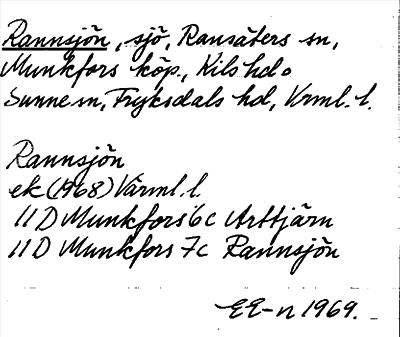 Rannsjön, sjö, Ransäters sn,
Munkfors köp., Kils hd o
Sunne sn, Fryksdals hd, Vrml. l.
Rannsjön
ek (1968) Värml. l.
11 D Munkfors 6c Arttjärn
11 D Munkfors 7c Rannsjön
EE-n 1969.